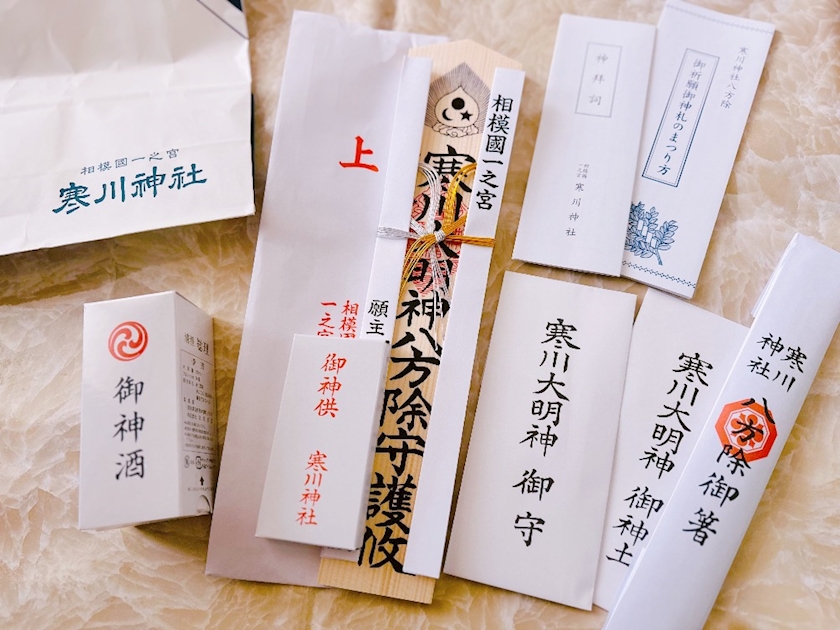 相模國一之宮
寒川神社
上
相模國
一之宮
相模國一之宮
寒川大明神八方除守護攸
願主
神拝詞
相模國
一之宮
寒川神社
寒川神社八方除
御祈願御神札のまつり方
御神酒
御神供
寒川神社
寒川大明神 御守
寒川大明神 御神土
寒川
神社
八方除御箸